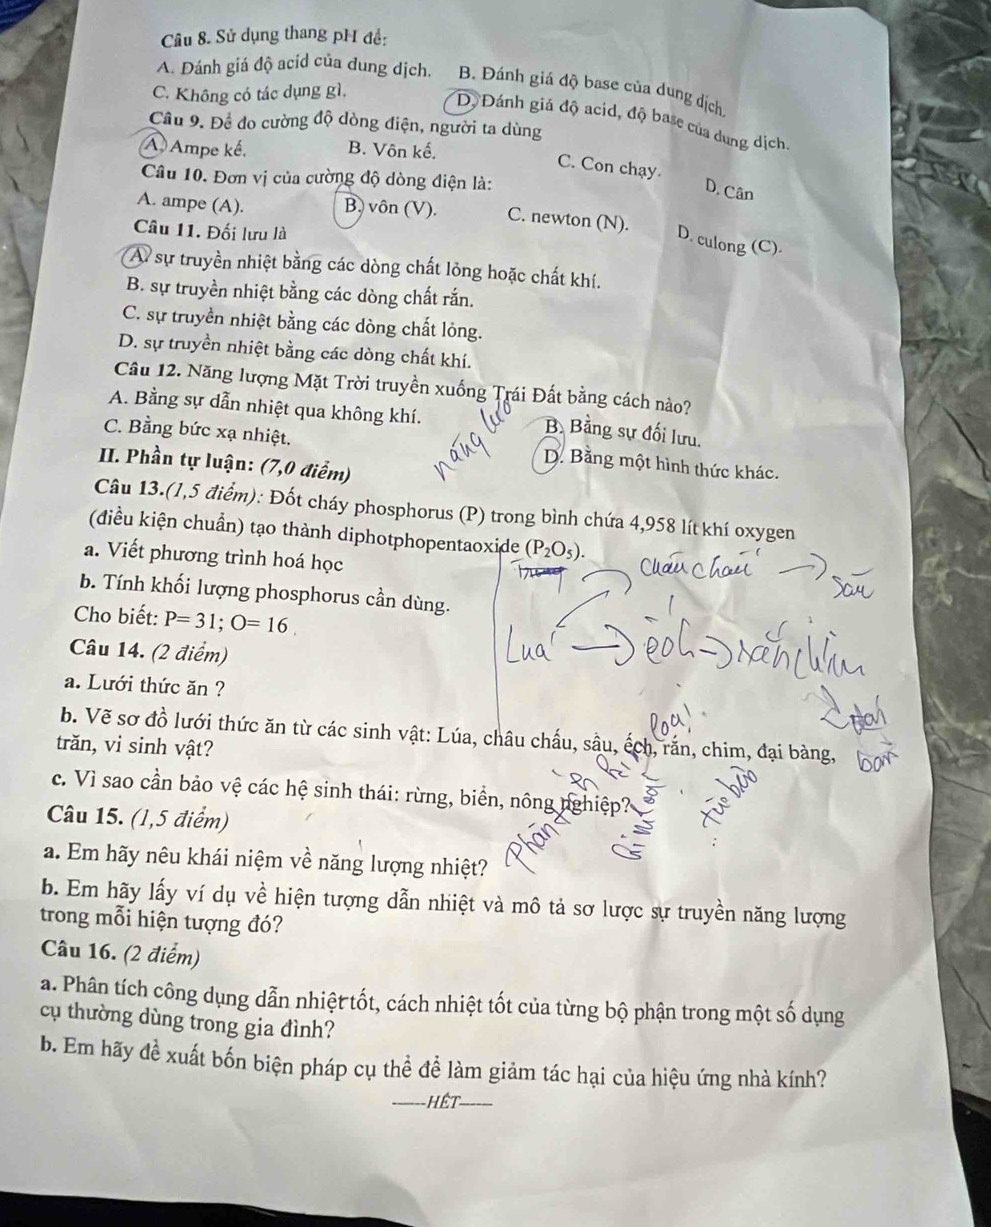 Câu 8. Sử dụng thang pH để:
A. Đánh giá độ acid của dung dịch. B. Đánh giá độ base của dung dịch.
C. Không có tác dụng gì. D. Đánh giá độ acid, độ base của dung dịch.
Câu 9. Để đo cường độ dòng điện, người ta dùng
A. Ampe kế. B. Vôn kế. C. Con chạy. D. Cân
Câu 10. Đơn vị của cường độ dòng điện là:
A. ampe (A). B. vôn (V). C. newton (N). D. culong (C).
Câu 11. Đối lưu là
A. sự truyền nhiệt bằng các dòng chất lỏng hoặc chất khí.
B. sự truyền nhiệt bằng các dòng chất rắn.
C. sự truyền nhiệt bằng các dòng chất lỏng.
D. sự truyền nhiệt bằng các dòng chất khí.
Câu 12. Năng lượng Mặt Trời truyền xuống Trái Đất bằng cách nào?
A. Bằng sự dẫn nhiệt qua không khí. B. Bằng sự đối lưu.
C. Bằng bức xạ nhiệt. D. Bằng một hình thức khác.
II. Phần tự luận: (7,0 điểm)
Câu 13.(1,5 điểm): Đốt cháy phosphorus (P) trong bình chứa 4,958 lít khí oxygen
(điều kiện chuẩn) tạo thành diphotphopentaoxide (P₂O₅).
a. Viết phương trình hoá học
b. Tính khối lượng phosphorus cần dùng.
Cho biết: P= 31; O= 16
Câu 14. (2 điểm)
a. Lưới thức ăn ?
b. Vẽ sơ đồ lưới thức ăn từ các sinh vật: Lúa, châu chấu, sâu, ếch, rắn, chim, đại bàng,
trăn, vi sinh vật?
c. Vì sao cần bảo vệ các hệ sinh thái: rừng, biển, nông nghiệp?
Câu 15. (1,5 điểm)
a. Em hãy nêu khái niệm về năng lượng nhiệt?
b. Em hãy lấy ví dụ về hiện tượng dẫn nhiệt và mô tả sơ lược sự truyền năng lượng
trong mỗi hiện tượng đó?
Câu 16. (2 điểm)
a. Phân tích công dụng dẫn nhiệt tốt, cách nhiệt tốt của từng bộ phận trong một số dụng
cụ thường dùng trong gia đình?
b. Em hãy đề xuất bốn biện pháp cụ thể để làm giảm tác hại của hiệu ứng nhà kính?
------HẾT------